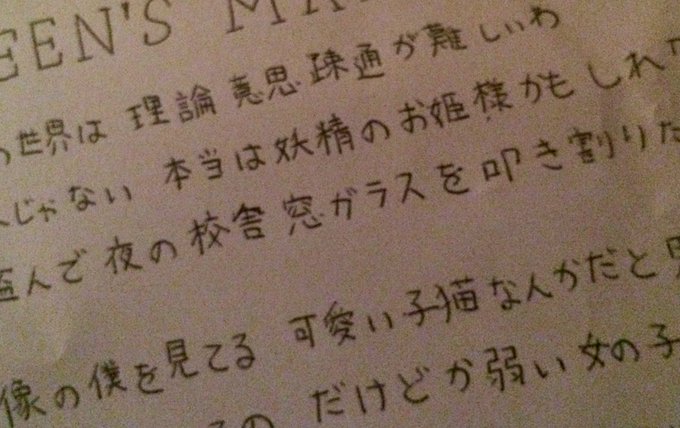 EEN'S MA
世界は 理論 意思 疎通が難しいわ
じゃない 本当は妖精のお姫様かもしれ
盗んで夜の校舎 窓ガラスを叩き割りた
像の僕を見てる 可愛い子猫なんかだと
だけどか弱い女の子